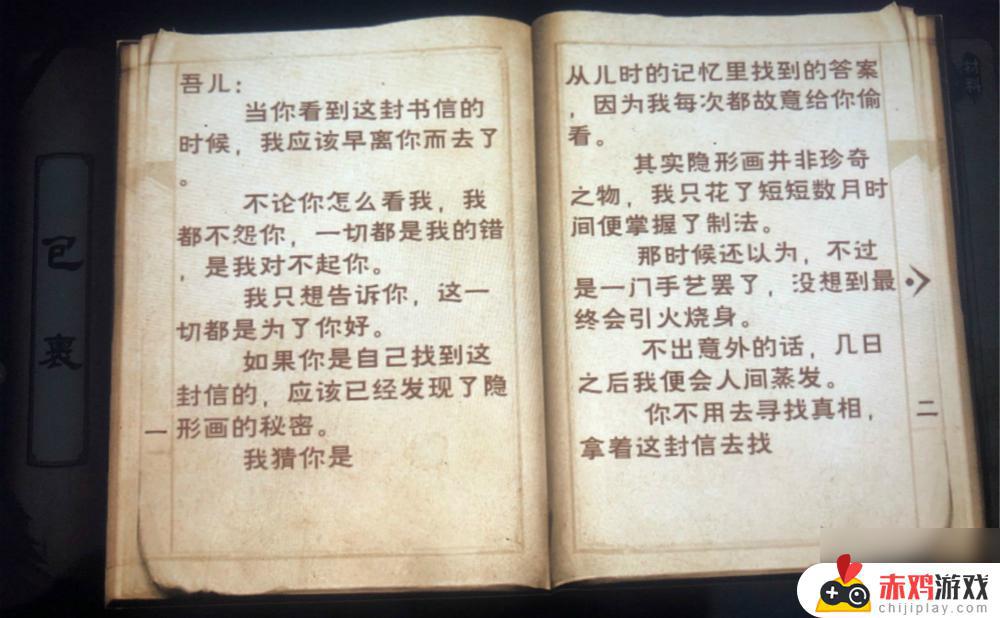 吾儿：
当你看到这封书信的
时候，我应该早离你而去了
。
不论你怎么看我，我
都不怨你，一切都是我的错
，是我对不起你。
我只想告诉你，这一
切都是为了你好。
如果你是自己找到这
封信的，应该已经发现了隐
形画的秘密。
我猜你是
一
从儿时的记忆里找到的答案
，因为我每次都故意给你偷
看。
其实隐形画并非珍奇
之物，我只花了短短数月时
间便掌握了制法。
那时候还以为，不过
是一门手艺罢了，没想到最
终会引火烧身。
不出意外的话，几日
之后我便会人间蒸发。
你不用去寻找真相，
拿着这封信去找
二
包裹
材料
赤鸡游戏
chijiplay.com